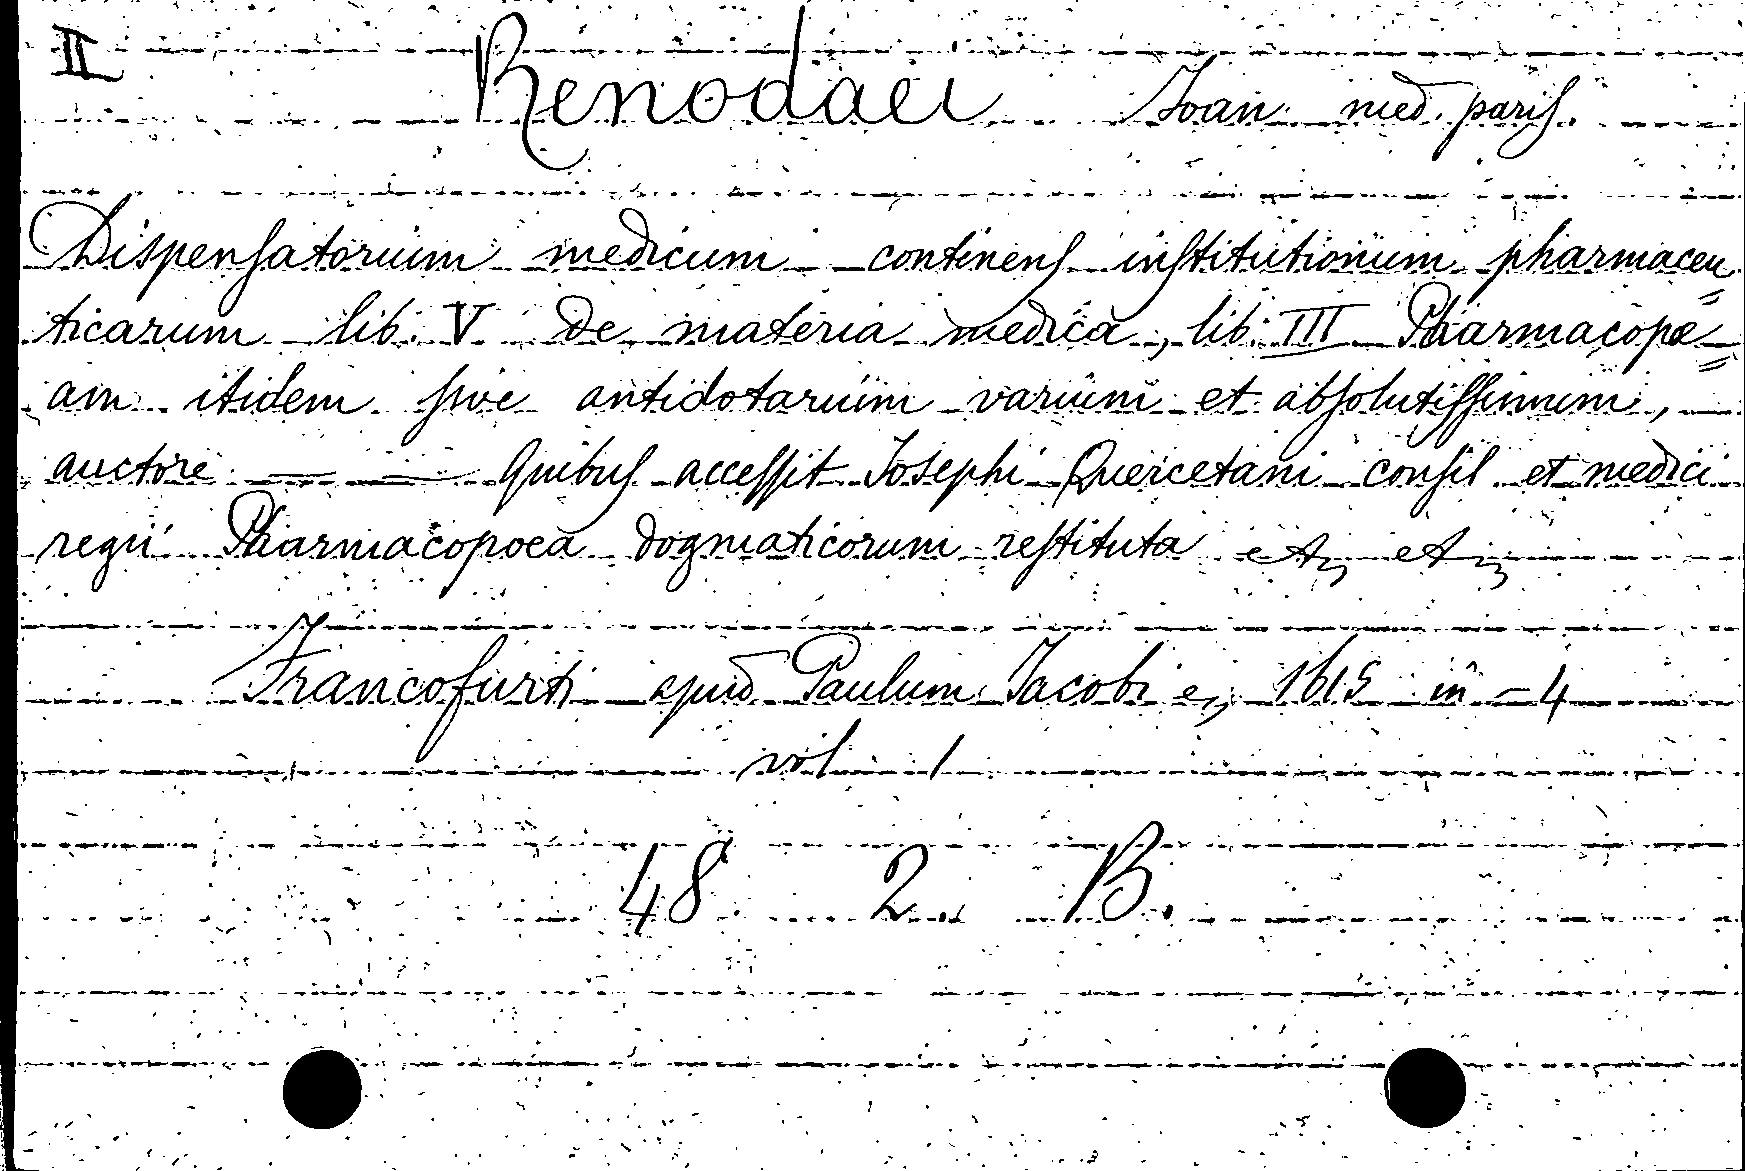 II Renodaei Joan. med. paris.
Dispensatorium medicum continens institutionum pharmaceu=
ticarum lib. V de materia medica, lib. III Pharmacopæ=
am itidem sive antidotarium varium et absolutissimum,
auctore — — Quibus accessit Josephi Quercetani consil et medici
regii Pharmacopoea dogmaticorum restituta etc, etc,
Francofurti apud Paulum Jacobi 1615 in-4
vol 1
48 2. B.